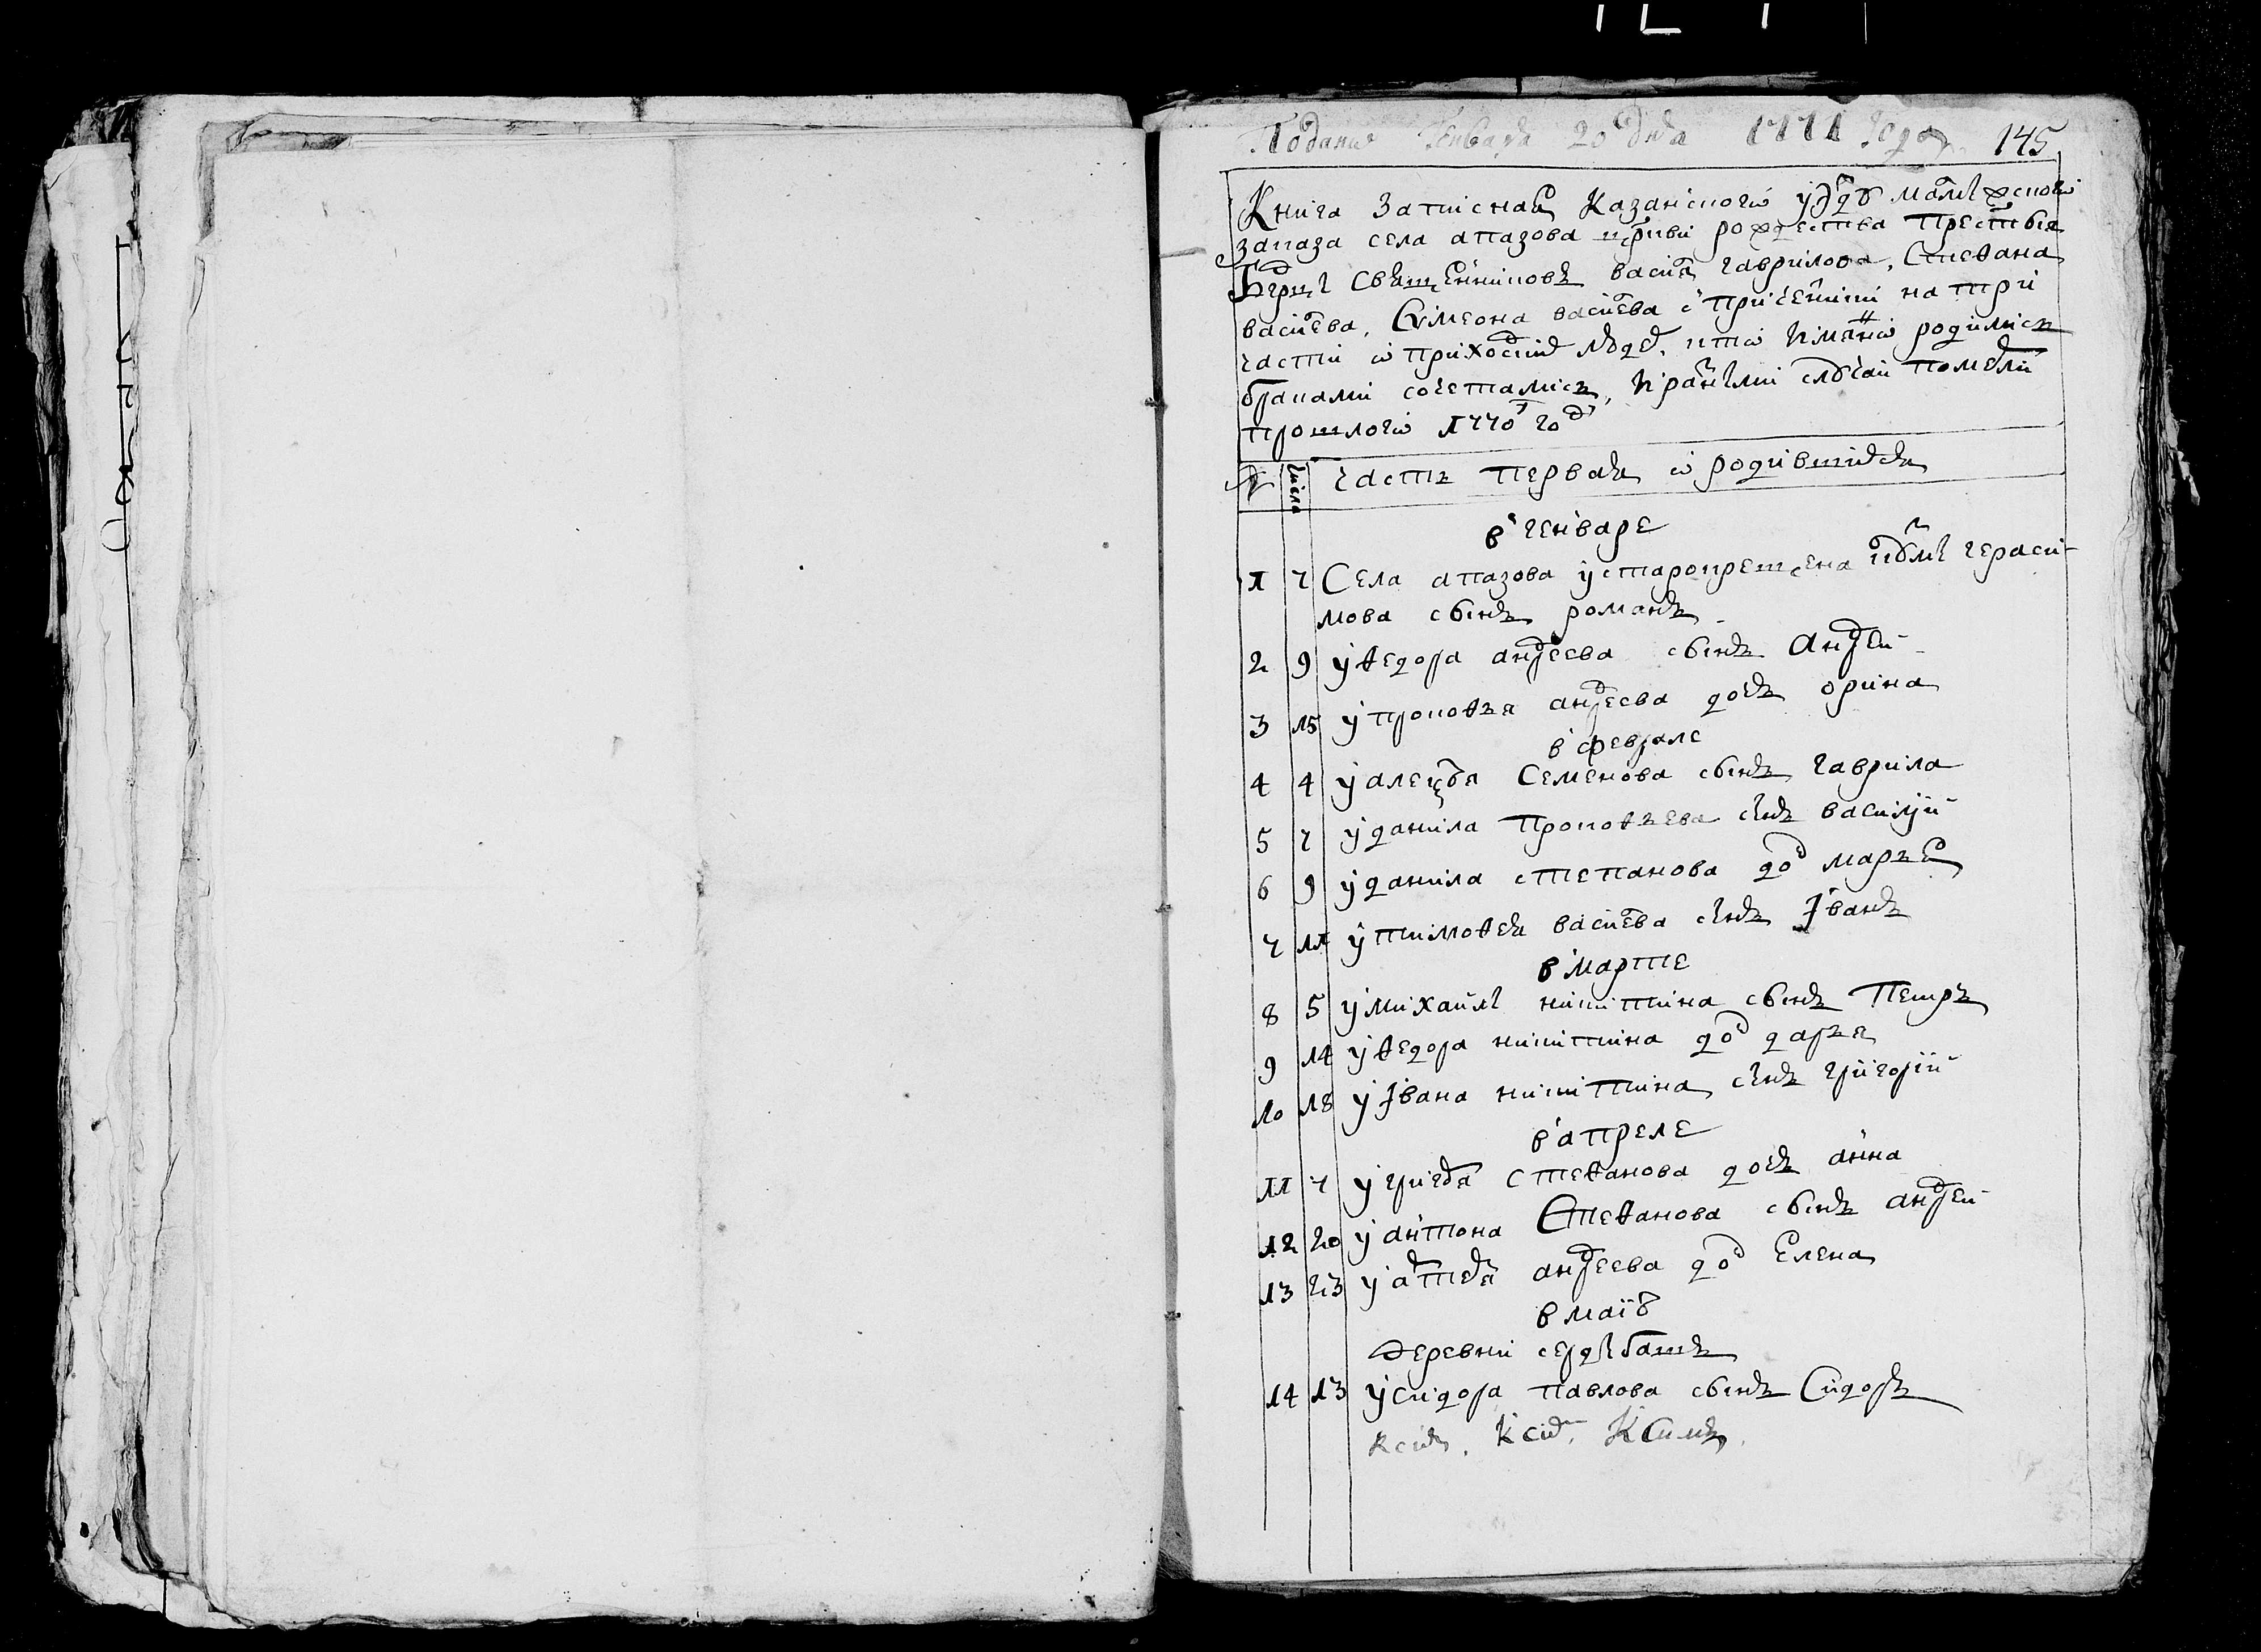 Подана Генваря 20 дня 1771 году 145
Книга записная казанского уезду
запаза села апазова церкви рождества престыя
бдцы священниковъ васиᲧ гаврилова, Стеѳана
васиева, Сѵмеона васиева с причетники на три
части ѡ приходскихъ людехъ, кто имянно родились
браками сочетались, и разными случаи померли
прошлого 1770 год
№ числа часть первая ѡ родившихся
в генваре
1 7 Села апазова у старокрещена гераси-
мова сынъ романъ
2 9 у ѳедора андреева сынъ Андрей
3 15 у прокоѳья андреева дочь орина
в феврале
4 4 у алеѯѣя Семенова сынъ гаврила
5 7 у данила прокоѳьева снъ василий
6 9 у данила степанова до марья
7 11 у тимоѳея васиева снъ Iванъ
в марте
8 5 у михаила никитина сынъ Петръ
9 14 у ѳедора никитина до дарья
10 18 у Iвана никитина снъ григорий
в апреле
11 7 у григоя стеѳанова дочь анна
12 20 у антона Стеѳанова сынъ андрей
13 23 у андреева до Елена
в маїѣ
деревни сердѣбашъ
14 13 у сидора павлова сынъ Сидоръ